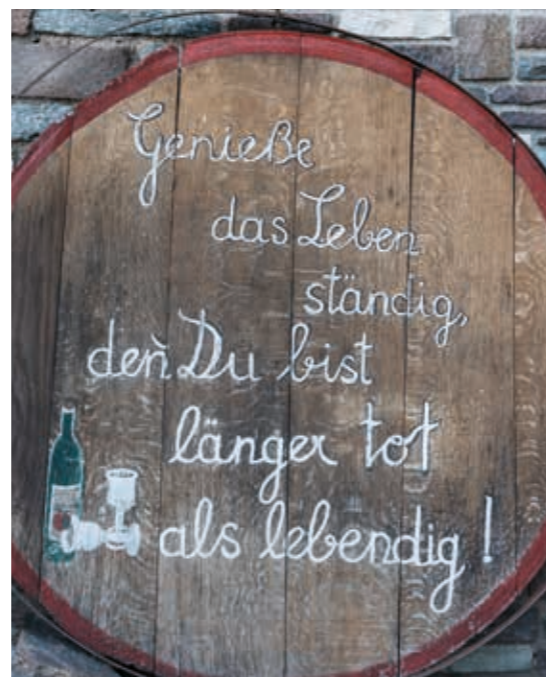 Genieße
das Leben
ständig,
den̄ Du bist
länger tot
als lebendig!